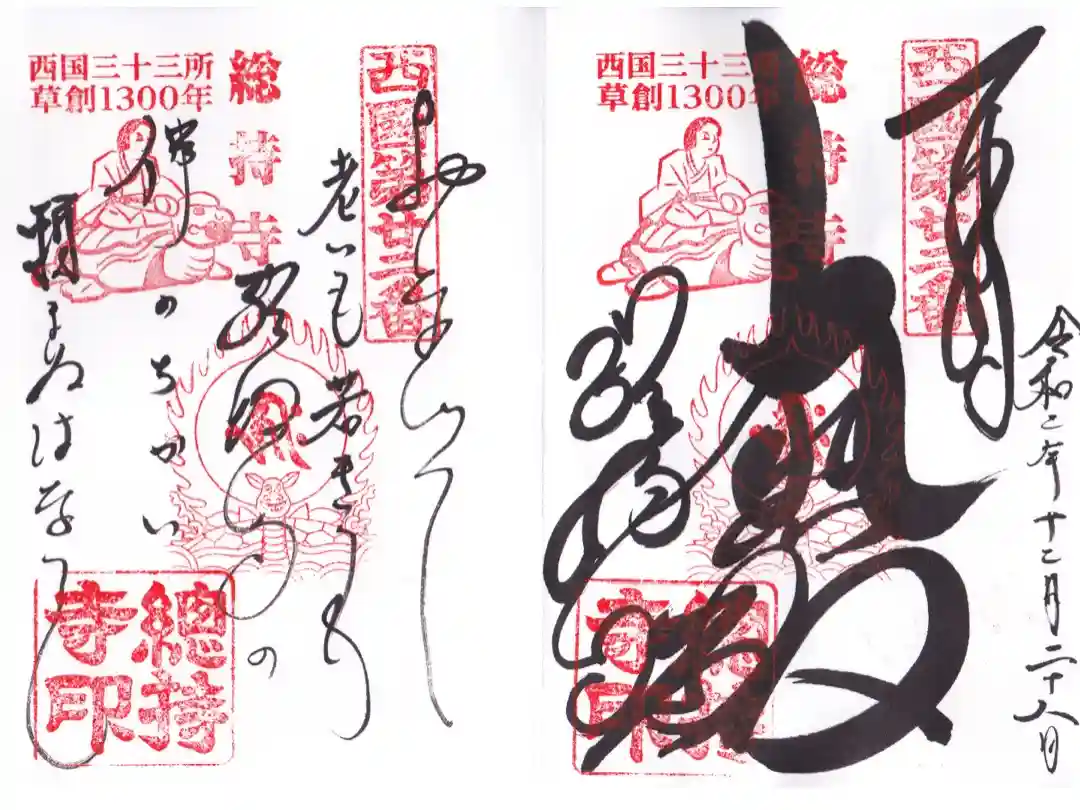 西國第廿二番
奉拝
令和二年十二月二十八日
大悲殿
総持寺
西国三十三所
草創1300年
総持寺
總持寺印
西國第廿二番
老いも若きも
佛のちかい
頼まぬはなし
西国三十三所
草創1300年
総持寺
總持寺印